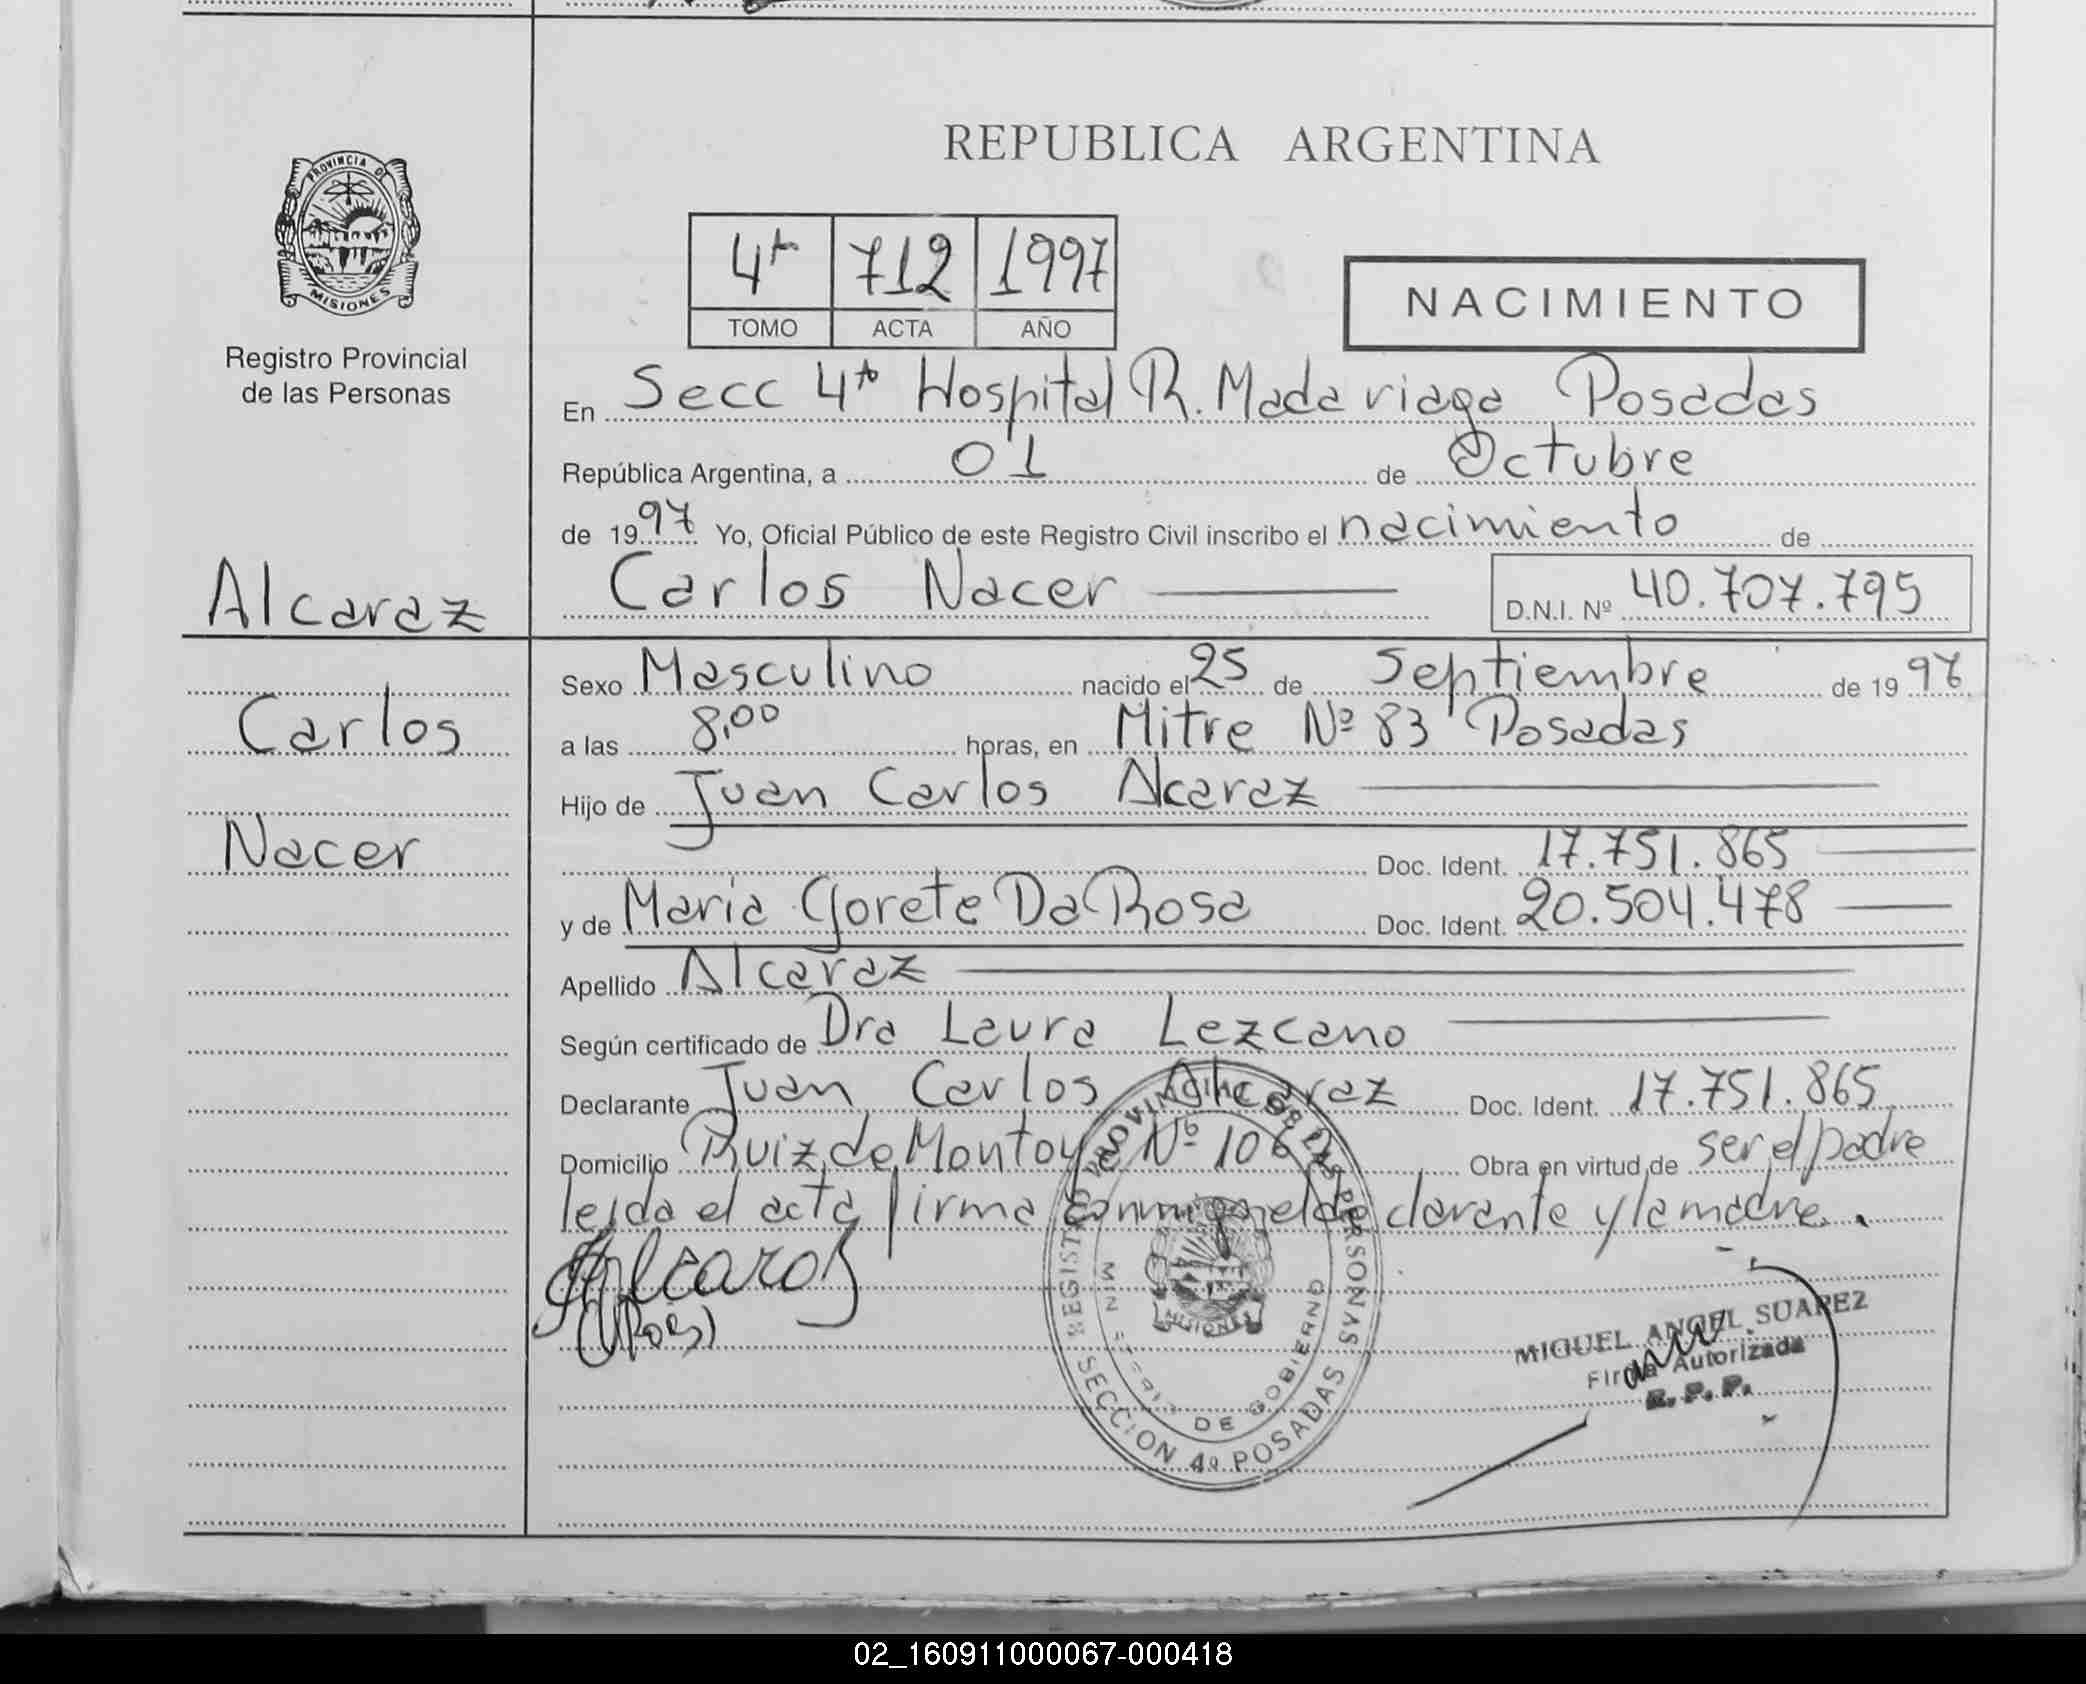 REPUBLICA ARGENTINA
PROVINCIA DE
MISIONES
Registro Provincial
de las Personas
4ta 712 1997
TOMO ACTA AÑO
NACIMIENTO
En Secc 4ta Hospital R. Madariaga Posadas
República Argentina, a 01 de Octubre
de 1997 Yo, Oficial Público de este Registro Civil inscribo el nacimiento de
Carlos Nacer D.N.I. Nº 40.707.795
Alcaraz
Carlos
Nacer
Sexo Masculino nacido el 25 de Septiembre de 1997
a las 8,00 horas, en Mitre Nº 83 Posadas
Hijo de Juan Carlos Alcaraz
Doc. Ident. 17.751.865
y de Maria Gorete Da Rosa Doc. Ident. 20.504.478
Apellido Alcaraz
Según certificado de Dra Laura Lezcano
Declarante Juan Carlos Alcaraz Doc. Ident. 17.751.865
Domicilio Ruiz de Montoya Nº 106 Obra en virtud de ser el padre
leida el acta firma conmigo el declarante y la madre.
Alcaraz
REGISTRO PROVINCIAL DE LAS PERSONAS
MISIONES
DE GOBIERNO
SECCION 4º POSADAS
MIGUEL ANGEL SUAREZ
Firma Autorizada
R. P. P.
02_160911000067-000418